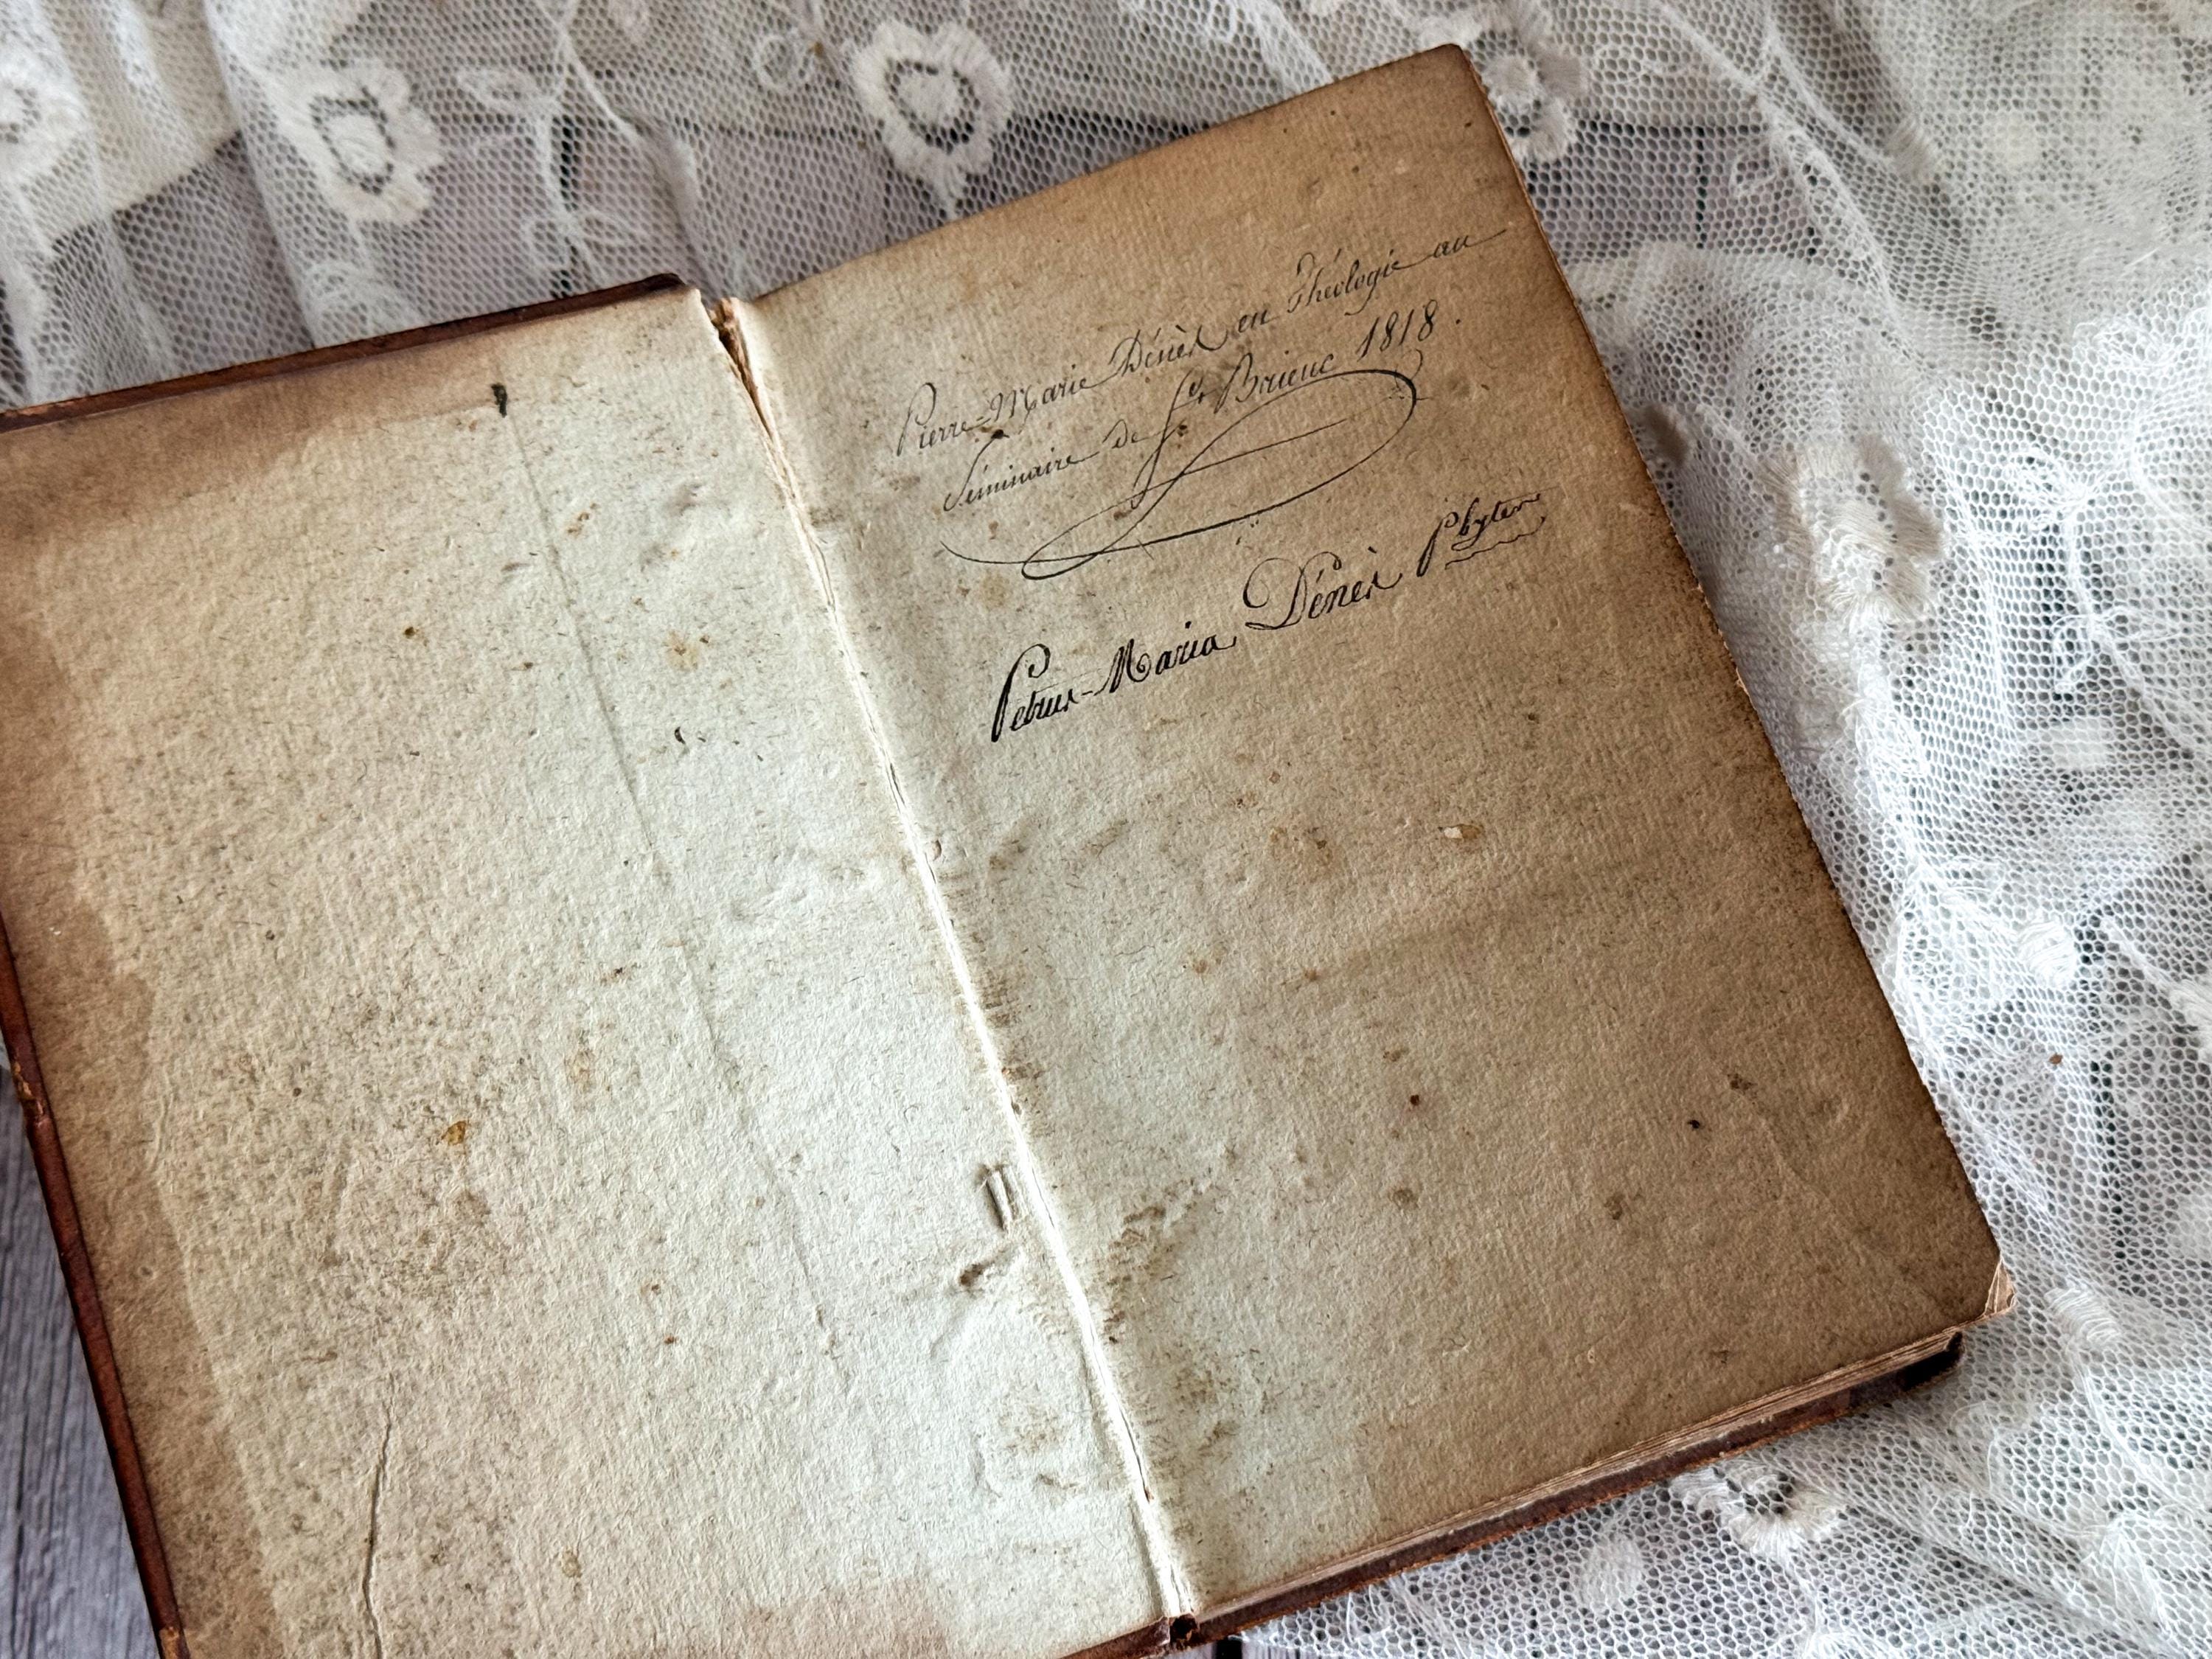 Pierre-Marie Dénès en Théologie au
Séminaire de St Brieuc 1818.
Petrus-Maria Dénès Pbyter